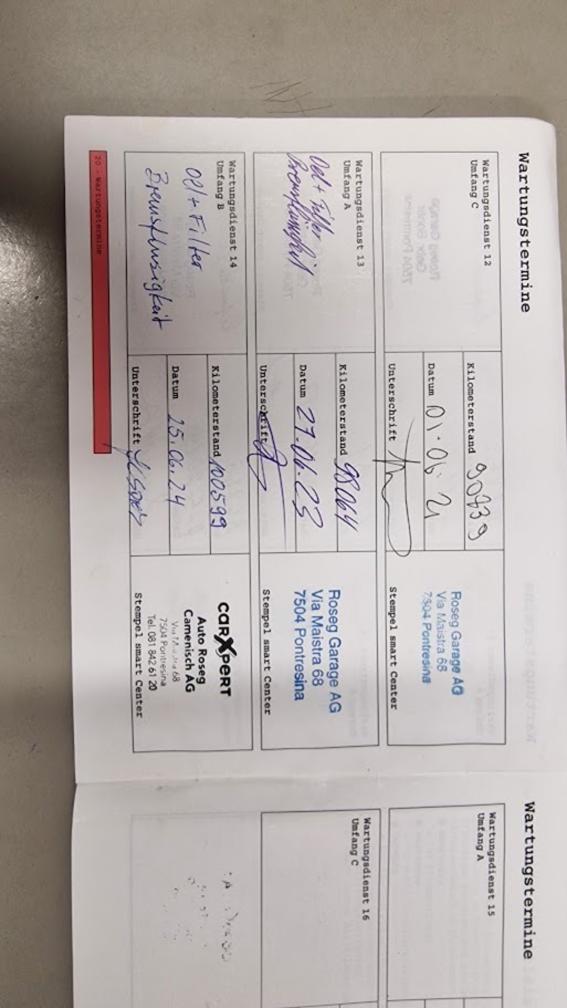 Wartungstermine
Wartungsdienst 12
Umfang C
Kilometerstand 90739
Datum 01.06.21
Unterschrift
Roseg Garage AG
Via Maistra 68
7504 Pontresina
Stempel smart Center
Wartungsdienst 13
Umfang A
Oel + Filter
Bremsflüssigkeit
Kilometerstand 98064
Datum 27.06.23
Unterschrift
Roseg Garage AG
Via Maistra 68
7504 Pontresina
Stempel smart Center
Wartungsdienst 14
Umfang B
Oel + Filter
Bremsflüsigkeit
Kilometerstand 100599
Datum 25.06.24
Unterschrift
carXpert
Auto Roseg
Camenisch AG
Via Maistra 68
7504 Pontresina
Tel. 081 842 61 20
Stempel smart Center
20 - Wartungstermine
Wartungstermine
Wartungsdienst 15
Umfang A
Wartungsdienst 16
Umfang C